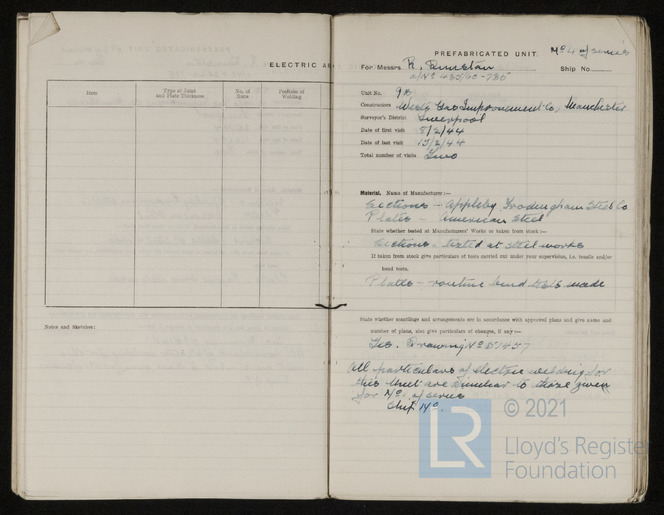 ELECTRIC AR
Item
Type of Joint
and Plate Thickness.
No. of
Runs
Position of
Welding
Notes and Sketches:
PREFABRICATED UNIT.
No 4 of series
For Messrs R. Dunston
Ship No.
Unit No. 9B
Constructors West's Gas Improvement Co, Manchester
Surveyor's District Liverpool
Date of first visit 8/2/44
Date of last visit 15/2/44
Total number of visits Two
Material. Name of Manufacturer:—
Sections - Appleby Frodingham Steel Co
Plates - American Steel
State whether tested at Manufacturers' Works or taken from stock:—
Sections - tested at steel works
If taken from stock give particulars of tests carried out under your supervision, i.e. tensile and/or
bend tests.
Plates - routine bend tests made
State whether scantlings and arrangements are in accordance with approved plans and give name and
number of plans, also give particulars of changes, if any:—
Yes. Drawing No
All particulars of electric welding for
this unit are similar to those given
for No 1 of series
© 2021
LR
Lloyd's Register
Foundation